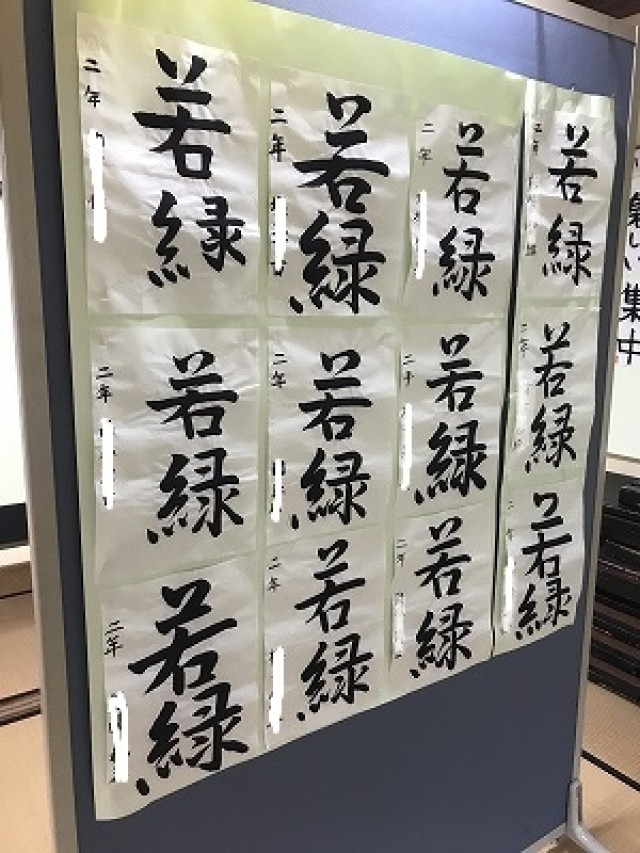 若緑
二年
若緑
二年
若緑
二年
若緑
二年
若緑
二年
若緑
二年
若緑
二年
若緑
二年
若緑
二年
若緑
二年
若緑
二年
若緑
二年
集中